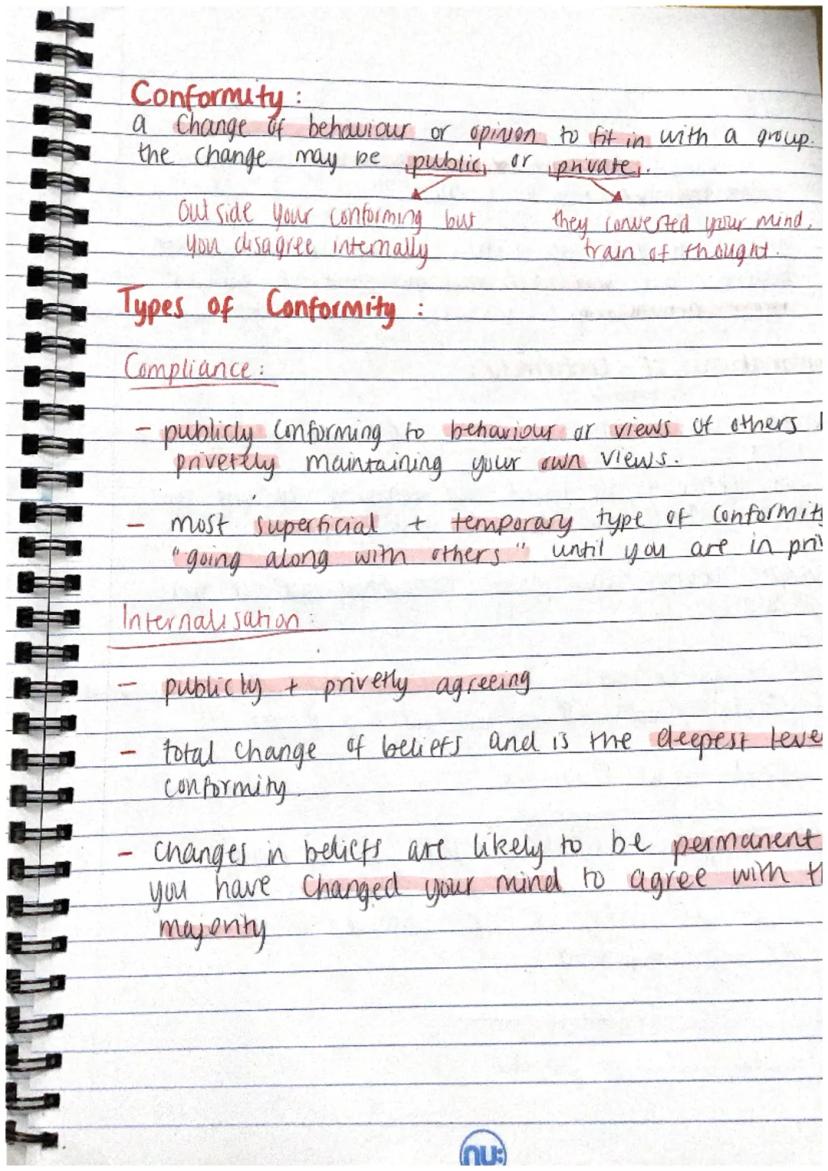 Conformity :
a change of behaviour or opinion to fit in with a group.
the change may be public, or private.
Outside your conforming but
you disagree internally
they converted your mind,
train of thought.
Types of Conformity :
Compliance :
- publicly conforming to behaviour or views of others
privetely maintaining your own views.
- most superficial + temporary type of conformit
"going along with others" until you are in pri
Internalisation
- publicly + privetly agreeing
- total change of beliefs and is the deepest leve
conformity
- changes in beliefs are likely to be permanent
you have changed your mind to agree with t
majority
nu: